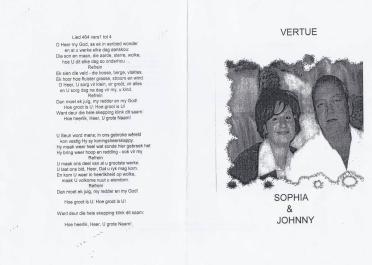 Lied 464 vers1 tot 4
O Heer my God, as ek in verbasd wonder
en al u werke elke dag aanskou:
Die son en maan, die aarde, sterre, wolke,
hoe U dit elke dag so onderhou ...
Refrein
Ek sien die veld - die bosse, berge, vlaktes,
Ek hoor hoe fluister grasse, stroom en wind
O Heer, U sorg vir klein, vir groot, vir alles
en U sorg dag na dag vir my, u kind.
Refrein
Dan moet ek juig, my redder en my God!
Hoe groot is U! Hoe groot is U!
Want deur die hele skepping klink dit saam:
Hoe heerlik, Heer, U grote Naam!
U Seun word mens; in ons gebroke wêreld
kom vestig Hy sy koningsheerskappy.
Hy maak weer heel wat sonde hier gebreek het
Hy bring weer hoop en redding - ook vir my
Refrein
U maak ons deel van al u grootste werke
U laat ons bid, Heer, Dat u ryk mag kom.
En kom U weer in heerlikheid op wolke,
maak U volkome nuut u eiendom.
Refrein
Dan moet ek juig, my redder en my God!
Hoe groot is U! Hoe groot is U!
Want deur die hele skepping klink dit saam:
Hoe heerlik, Heer, U grote Naam!
VERTUE
SOPHIA
&
JOHNNY